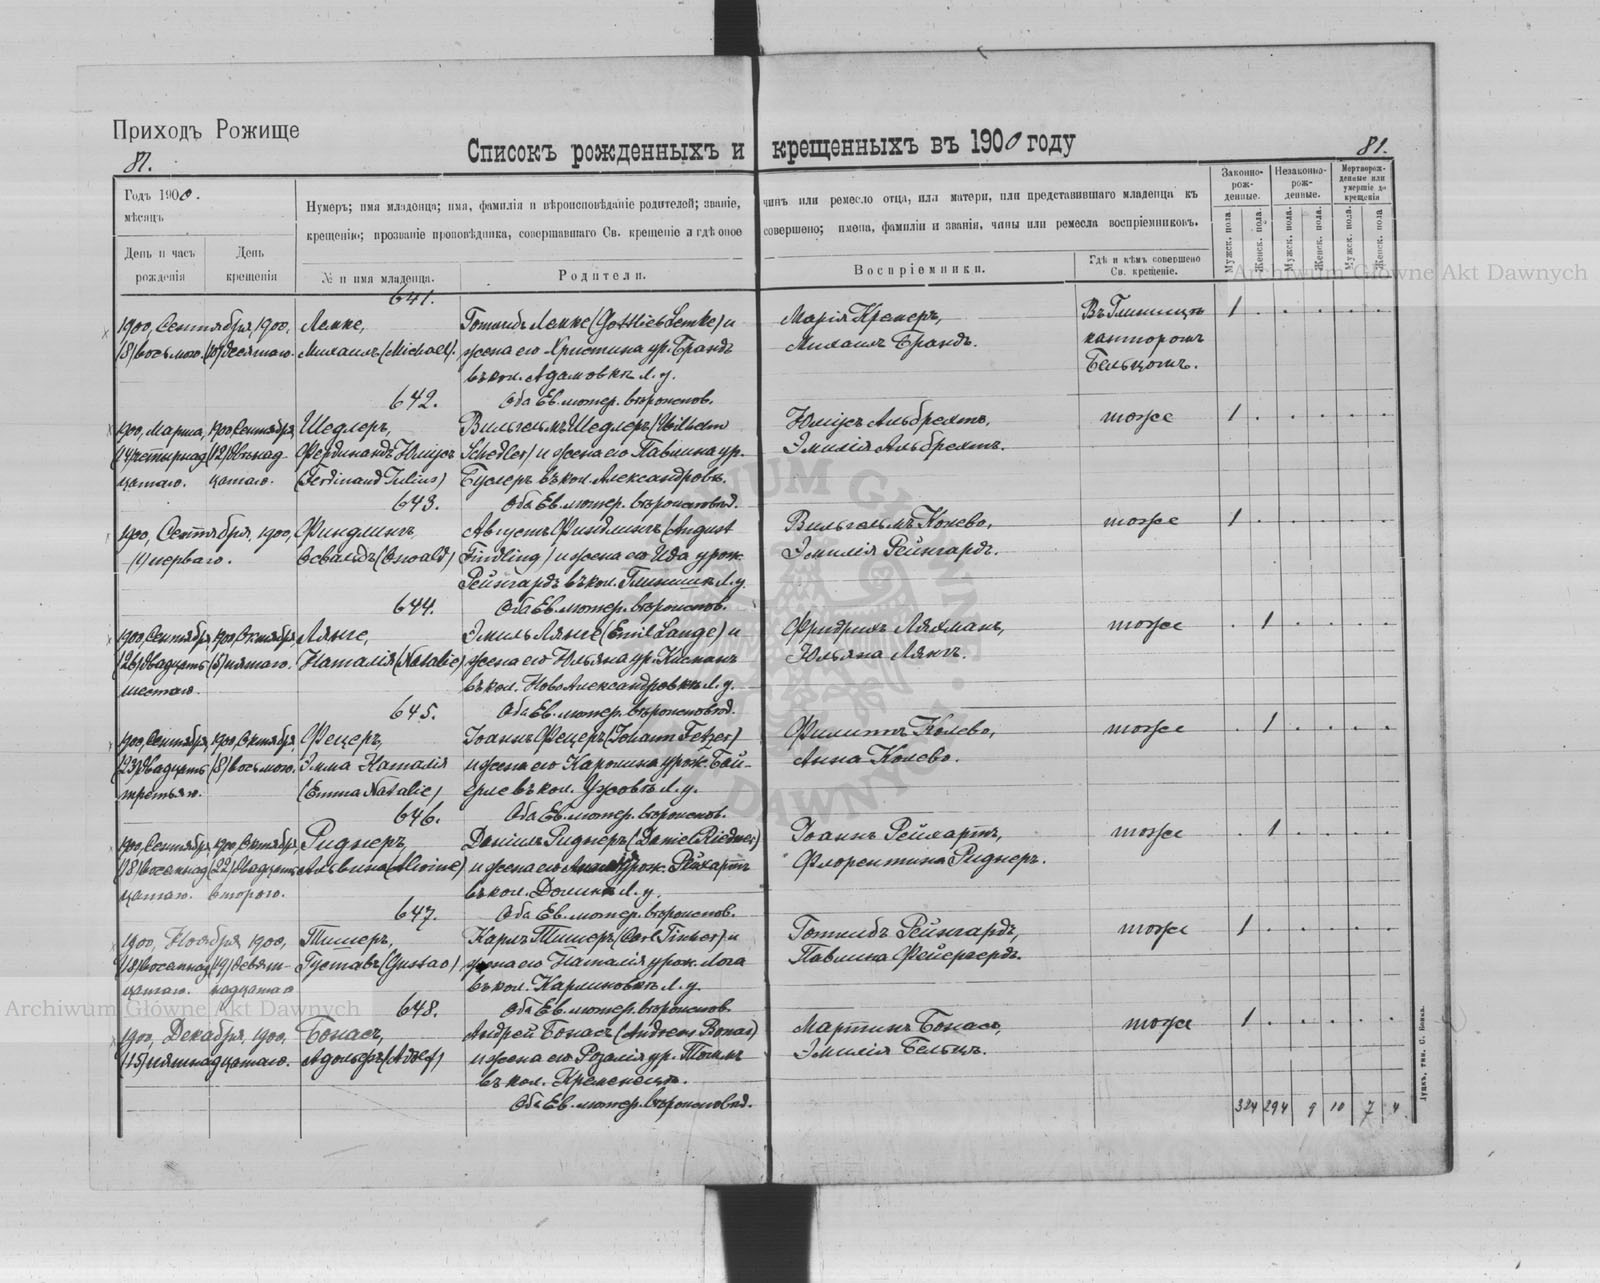 Приходъ Рожище
81.
Списокъ рожденныхъ и крещенныхъ въ 1900 году
81.
Годъ 1900.
мѣсяцъ
День и часъ рожденія
День крещенія
Нумеръ; имя младенца; имя, фамилія и вѣроисповѣданіе родителей; званіе, чинъ или ремесло отца, или матери, или представившаго младенца къ
крещенію; прозваніе проповѣдника, совершавшаго Св. крещеніе и гдѣ оное совершено; имена, фамиліи и званія, чины или ремесла воспріемниковъ.
№ и имя младенца.
Родители.
Воспріемники.
Гдѣ и кѣмъ совершено Св. крещеніе.
Законно-рожденные.
Незаконно-рожденные.
Мертворожденные или умершіе до крещенія
Мужск. пола.
Женск. пола.
Мужск. пола.
Женск. пола.
Мужск. пола.
Женск. пола
641.
1900, Сентября, 1900,
Лемке,
Готлибъ Лемке (Gottlieb Lemke) и
Марія Кремеръ,
1
(8) восьмого. (10) десятаго.
Михаилъ (Michael).
жена его Христина ур. Брандъ
Михаилъ Брандъ.
канторомъ
въ кол. Адамовкѣ Л. у.
Бельцомъ.
642.
Оба Ев. лютер. вѣроиспов.
1900, Марта, 1900, Сентября,
Шедлеръ,
Вильгельмъ Шедлеръ (Wilhelm
Юліусъ Альбрехтъ,
тоже
1
(14) четырнад (12) двѣнад-
Фердинандъ Юліусъ
Schedler) и жена его Павлина ур.
Эмилія Альбрехтъ.
цатаго. цатаго.
(Ferdinand Julius)
Буслеръ въ кол. Александровк.
643.
Оба Ев. лютер. вѣроисповѣд.
1900, Сентября, 1900,
Финдлингъ,
Августъ Финдлингъ (August
Вильгельмъ Колево,
тоже
1
(1) перваго.
Освальдъ (Oswald)
Findling) и жена его Ида урож.
Эмилія Рейнгардъ.
Рейнгардъ въ кол. Глинищѣ Л. у.
644.
Оба Ев. лютер. вѣроиспов.
1900, Сентября, 1900, Октября,
Лянге,
Эмиль Лянге (Emil Lange) и
Фридрихъ Ляхманъ,
тоже
1
(26) двадцать (5) пятаго.
Наталія (Natalie)
жена его Юльяна ур. Кисманъ
Юльяна Лянгъ.
шестаго.
въ кол. НовоАлександровкѣ Л. у.
645.
Оба Ев. лютер. вѣроисповѣд.
1900, Сентября, 1900, Октября,
Фецеръ,
Іоаннъ Фецеръ (Johann Fetzer)
Филиппъ Колево,
тоже
1
(23) двадцать (8) восьмого.
Эмма Наталія
и жена его Каролина урож. Бай-
Анна Колево.
третьяго.
(Emma Natalie)
ерле въ кол. Ужовѣ Л. у.
646.
Оба Ев. лютер. вѣроиспов.
1900, Сентября, 1900, Октября,
Риднеръ,
Даніилъ Риднеръ (Daniel Riedner)
Іоаннъ Рейхартъ,
тоже
1
(18) восемнад (22) двадцать
Альвина (Alwine)
и жена его урож. Рейхартъ
Флорентина Риднеръ.
цатаго. второго.
въ кол. Долинкѣ Л. у.
647.
Оба Ев. лютер. вѣроиспов.
1900, Ноября, 1900,
Тишеръ,
Карлъ Тишеръ (Carl Tischer) и
Готлибъ Рейнгардъ,
тоже
1
(18) восемнад (19) девят-
Густавъ (Gustav)
жена его Наталія урож. Лога
Павлина Фейергердъ.
цатаго. надцатаго
въ кол. Карлиновкѣ Л. у.
648.
Оба Ев. лютер. вѣроиспов.
1900, Декабря, 1900,
Бонасъ,
Андрей Бонасъ (Andreas Bonas)
Мартинъ Бонасъ,
тоже
1
(15) пятнадцатаго.
Адольфъ (Adolf)
и жена его Розалія ур.
Эмилія Бельцъ.
въ кол. Кременецъ.
Оба Ев. лютер. вѣроисповѣд.
324 294 9 10 7 4
Луцкъ, тип. С. Бонка.
Archiwum Główne Akt Dawnych
Archiwum Główne Akt Dawnych